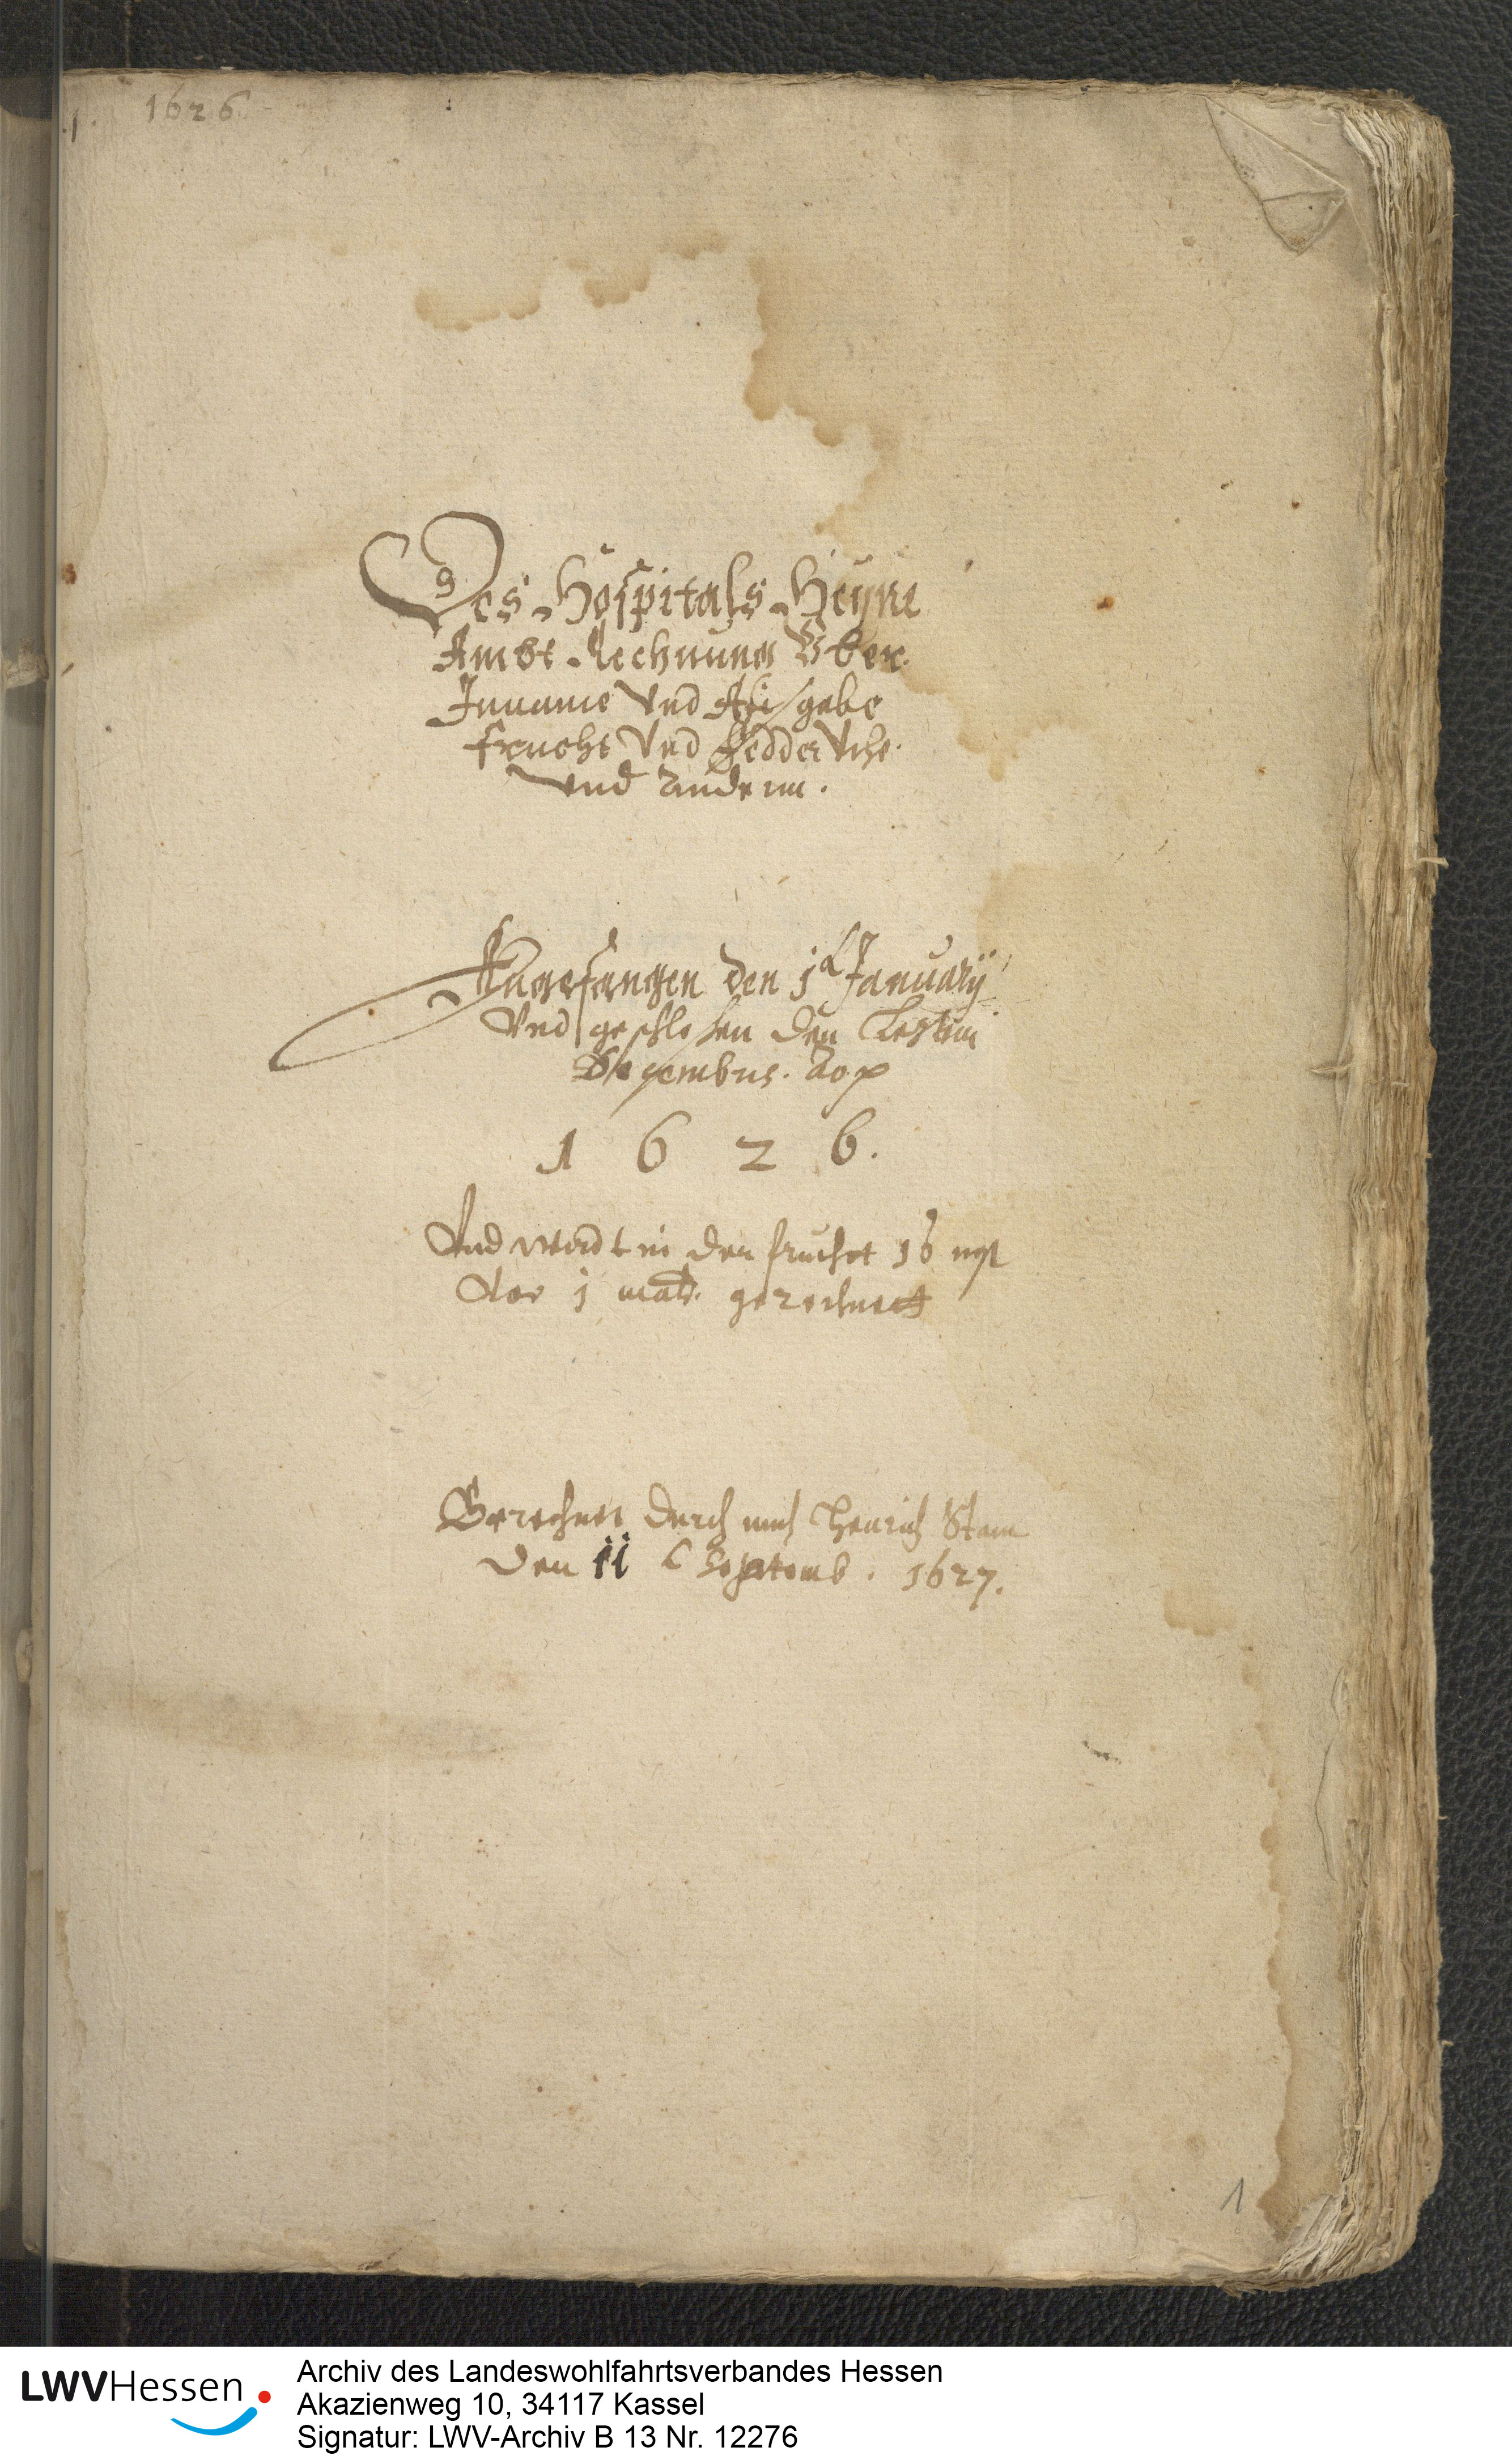 1. 1626.
Des Hospitals Heyne
Ambt Rechnung Vber
Inname Vnd Ausgabe
frucht Vnd fedder Vihe
vnd anderm.
Angefangen den 1 January
Vnd geschlosen den Lesten
Decembris. Ao
1626.
Vnd werdt in der frucht 16
vor 1 malt. gerechnett
Berechnet durch mich Henrich Stam
den 11 Septemb. 1627.
1
LWVHessen
Archiv des Landeswohlfahrtsverbandes Hessen
Akazienweg 10, 34117 Kassel
Signatur: LWV-Archiv B 13 Nr. 12276